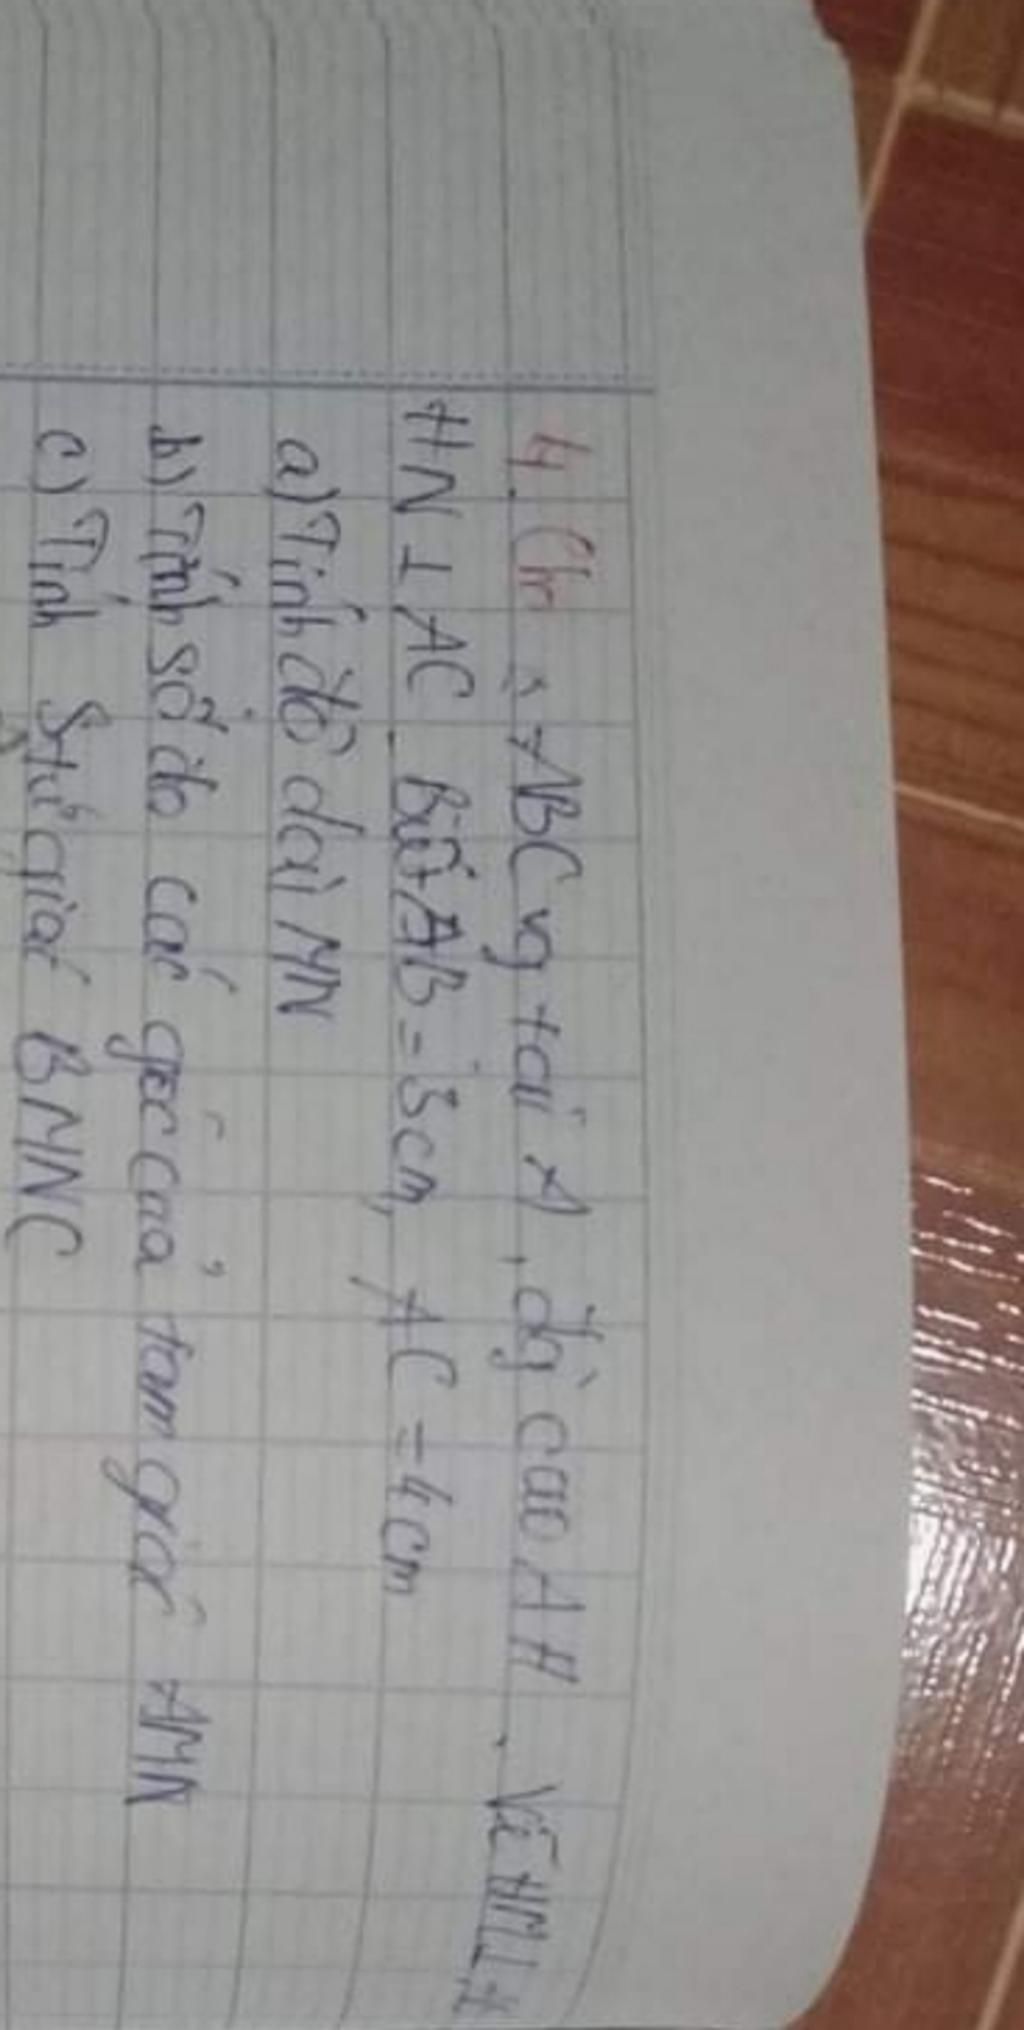 4. Ch △ ABC vg tại A, đg` cao AH. Vẽ HM⊥A
HN ⊥ AC. Biết AB = 3cm, AC = 4cm
a) Tính độ dài MN
b) Tính số đo các góc của tam giác AMN
c) Tính Stứ giác BMNC